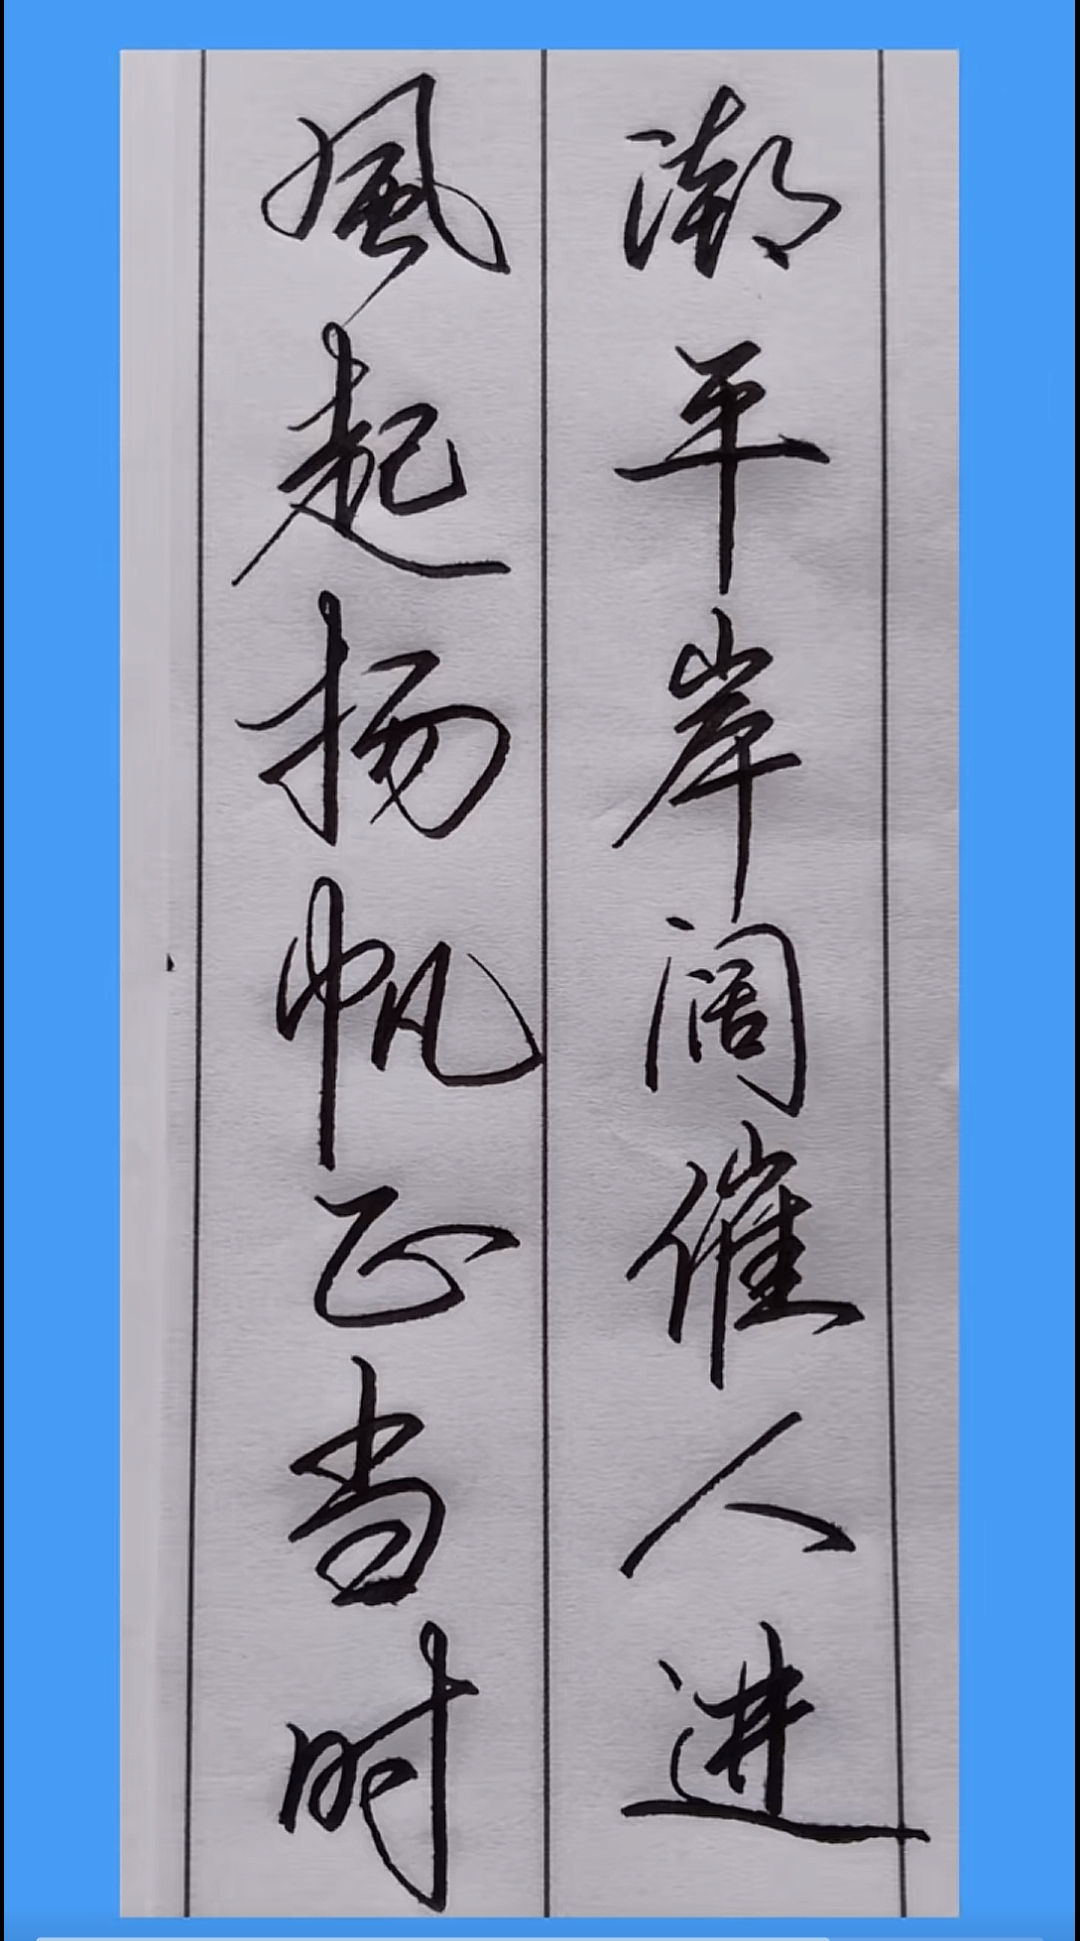 潮平岸阔催人进
風起扬帆正当时